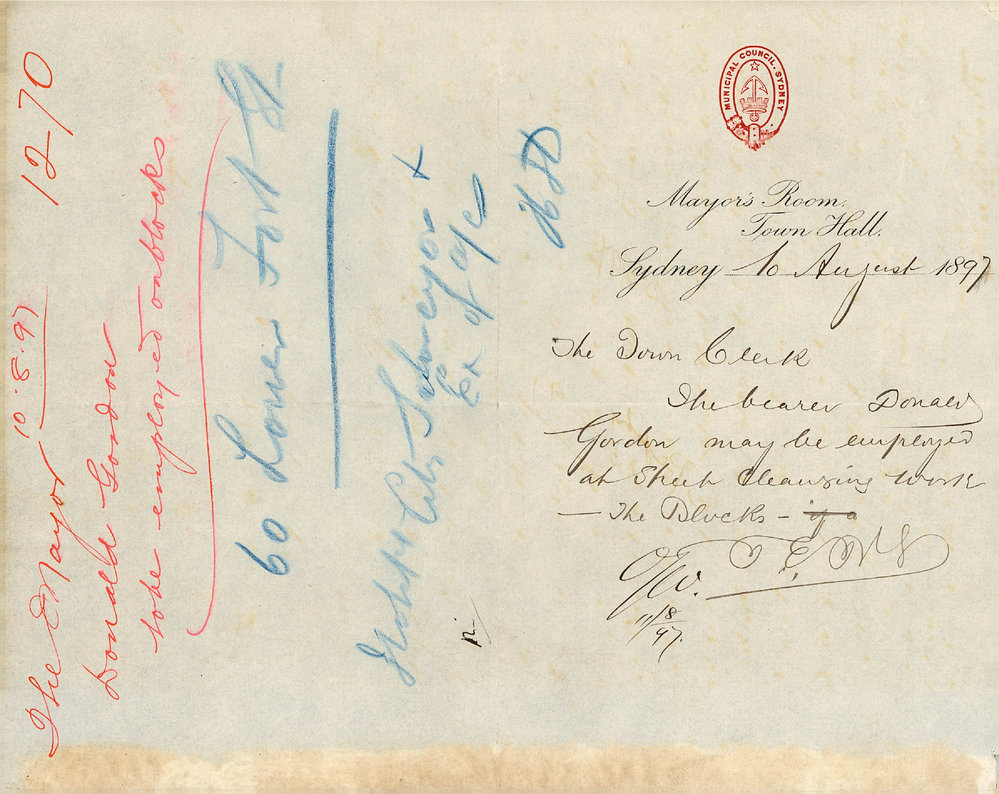 MUNICIPAL COUNCIL. SYDNEY
Mayor's Room,
Town Hall.
Sydney 10 August 1897
The Town Clerk
The bearer Donald
Gordon may be employed
at Street Cleansing work
— The Blocks —
11/8/97.
The Mayor 10.8.97 12-70
Donald Gordon
to be employed on blocks
60 Lower Fort St
City Surveyor